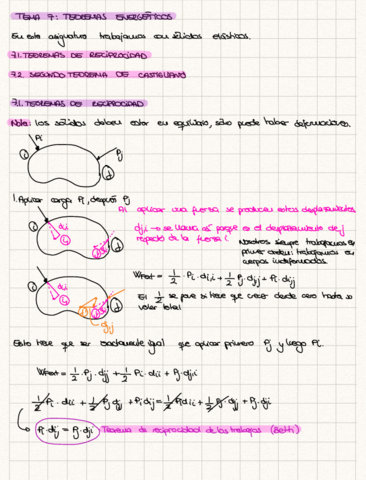 TEMA 7: TEOREMAS ENERGÉTICOS
En esta asignatura trabajamos con sólidos elásticos.
7.1. TEOREMAS DE RECIPROCIDAD
7.2. SEGUNDO TEOREMA DE CASTIGLIANO
7.1. TEOREMAS DE RECIPROCIDAD
Nota: los sólidos deben estar en equilibrio, sólo puede haber deformaciones.
Pi
i
Pj
j
1. Aplicar carga Pi, después Pj
Al aplicar una fuerza se producen estos desplazamientos
dii
dji → se llama así porque es el desplazamiento de j
respecto de la fuerza i
Nosotros siempre trabajamos en
primer orden: trabajamos en
cuerpos indeformados
WPext = 1/2 · Pi · dii + 1/2 Pj · djj + Pi · dij
El 1/2 se pone si tiene que crecer desde cero hasta su
valor total
dij
Esto tiene que ser exactamente igual que aplicar primero Pj y luego Pi.
WPext = 1/2 · Pj · djj + 1/2 Pi · dii + Pj · dji
1/2 Pi · dii + 1/2 Pj · djj + Pi · dij = 1/2 Pi dii + 1/2 Pj · djj + Pj · dji
Pi · dij = Pj · dji Teorema de reciprocidad de los trabajos (Betti)